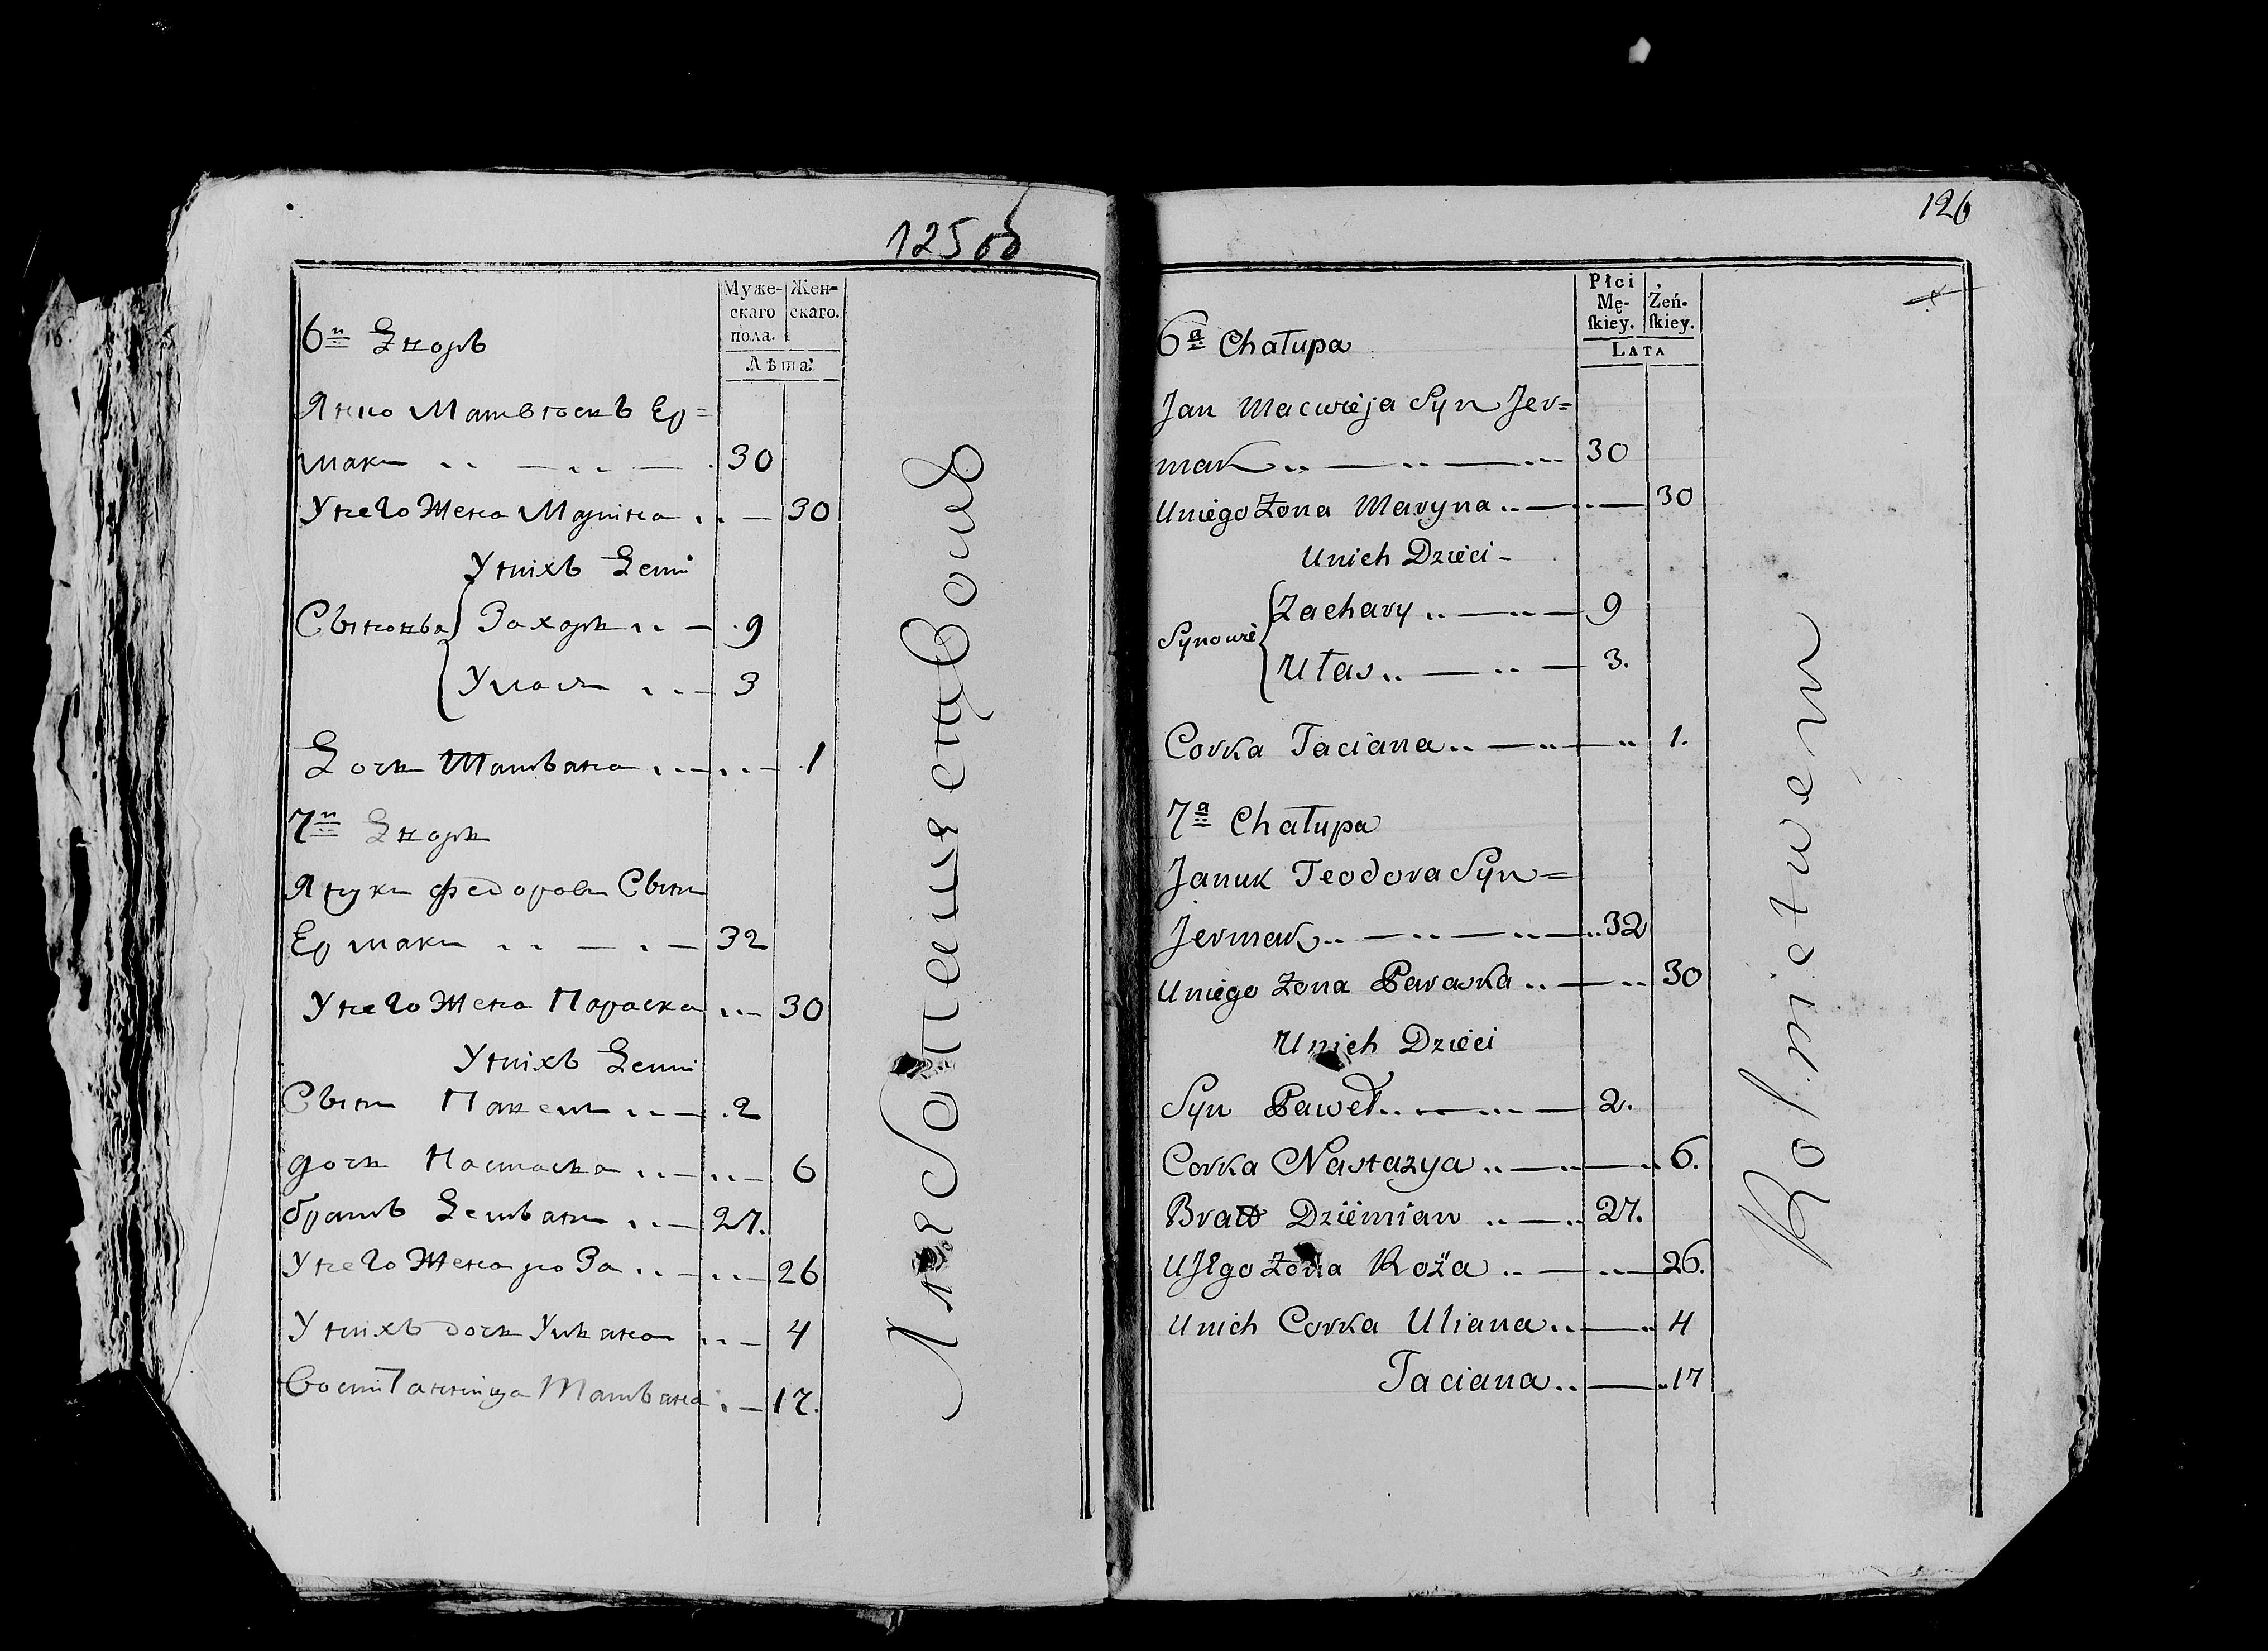 125 об
Муже- Жен-
скаго скаго.
пола.
Лѣта:
6й Двор
Янко Матвѣевъ Ер=
мак 30
У него жена Марина 30
У нихъ Дети
Сыновья Захар 9
Улас 3
Доч Татьяна 1
7й Двор
Янук Федоров Сын
Ермак 32
У него жена Параска 30
У нихъ Дети
Сын Павел 2
доч Настася 6
братъ Демьян 27.
У него жена роза 26
У нихъ доч Ульяна 4
Воспитанница Татьяна 17.
126
Płci
Mę- Żeń-
ſkiey. ſkiey.
LATA
6a Chałupa
Jan Macwieja Syn Jer=
mak 30
Uniego Żona Maryna 30
Unich Dzieci
Synowie Zachary 9
Ułas 3.
Corka Taciana 1.
7a Chałupa
Januk Teodora Syn=
Jermak 32
Uniego żona Paraska 30
Unich Dzieci
Syn Paweł 2.
Corka Nastazya 6.
Brat Dziemian 27.
UJego żona Roża 26.
Unich Corka Uliana 4
Taciana 17
Rolnictwem